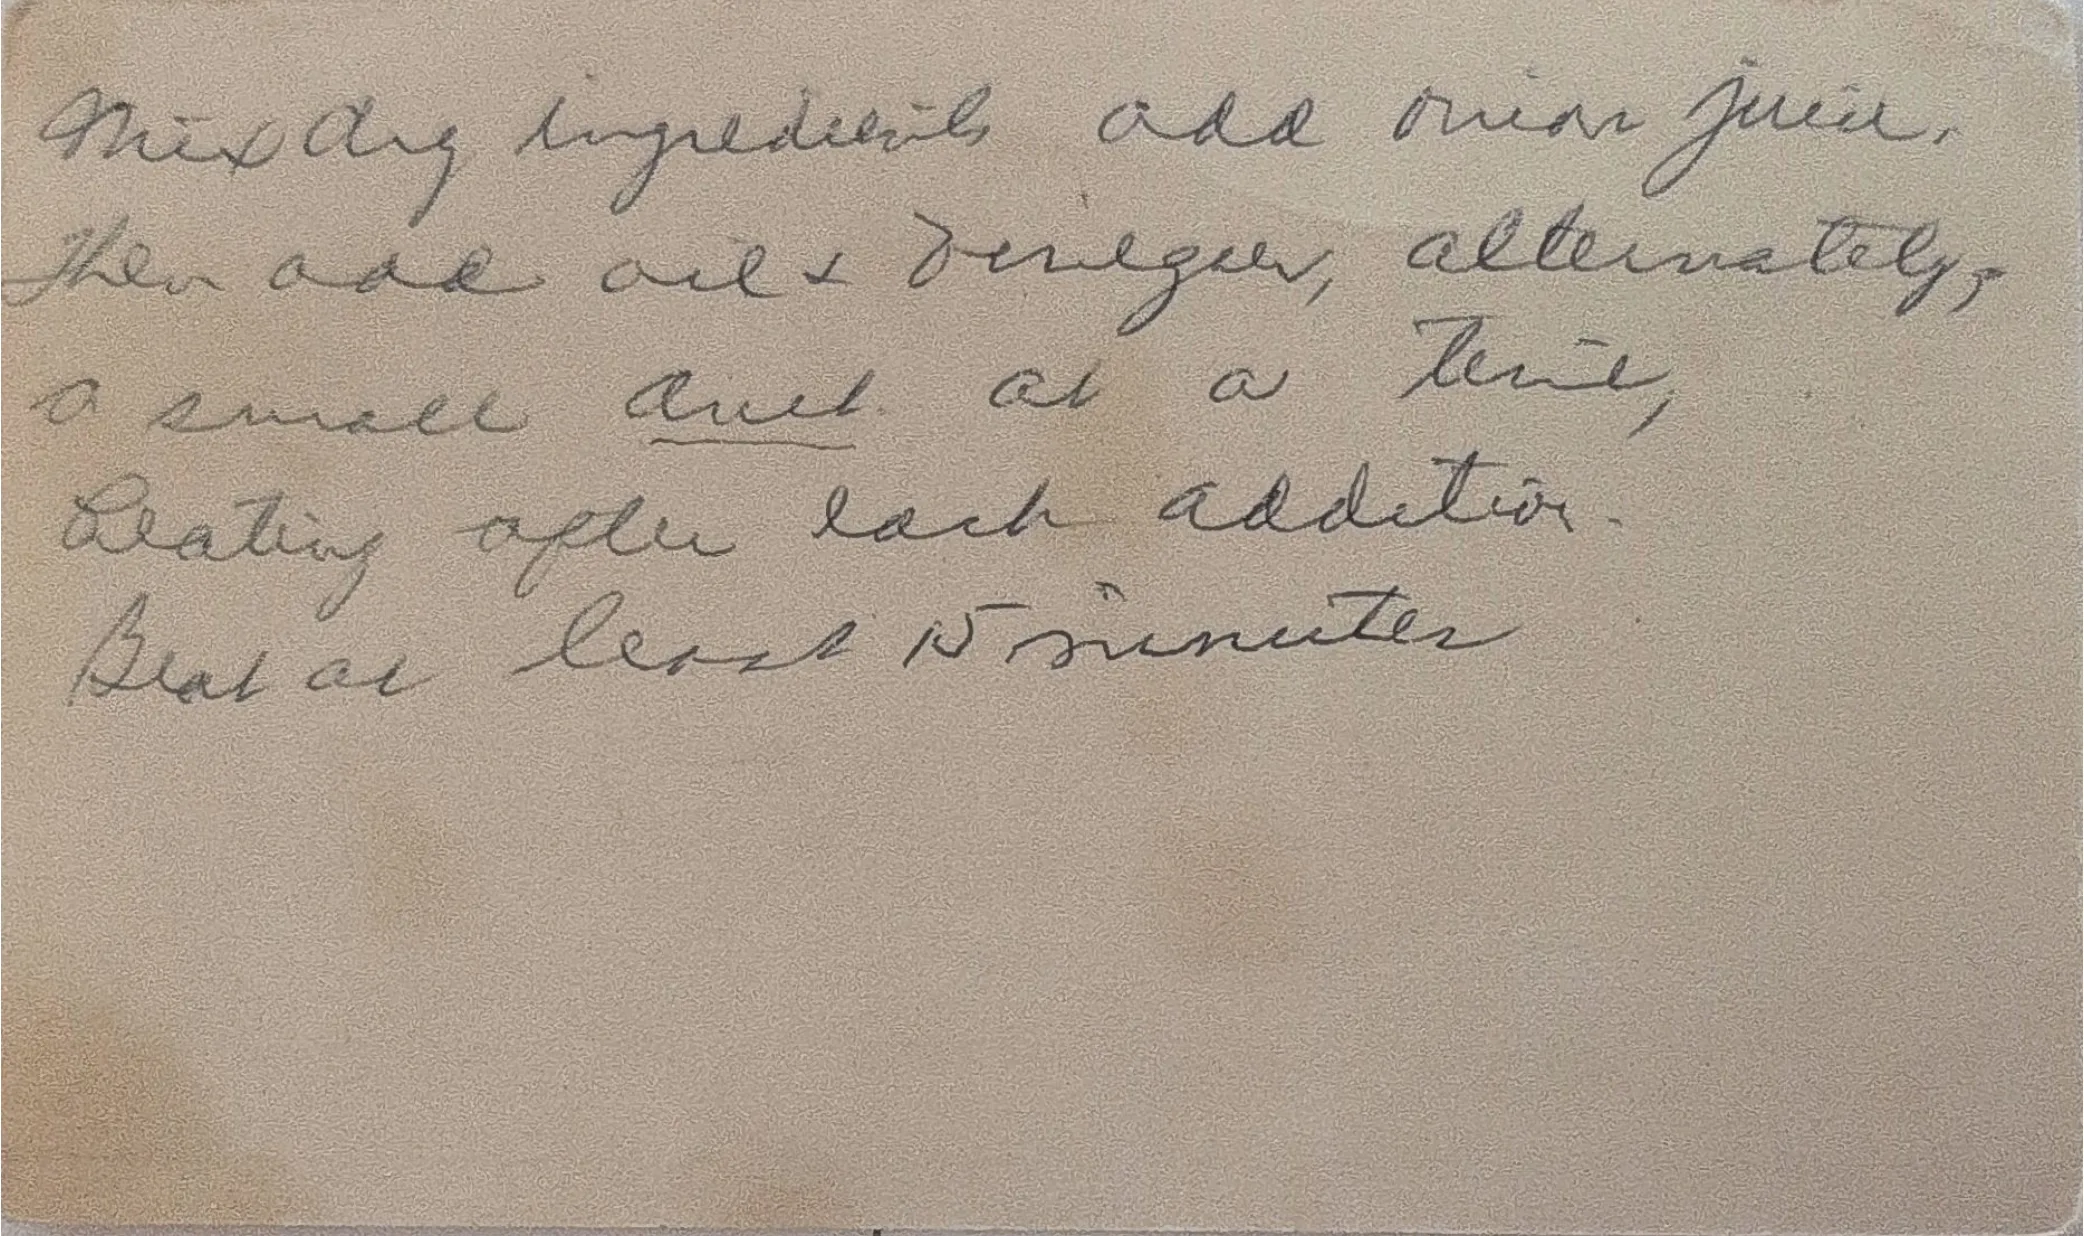 Mix dry ingredients add onion juice.
Then add oil & vinegar, alternately,
a small amt. at a time,
beating after each addition.
Beat at least 15 minutes